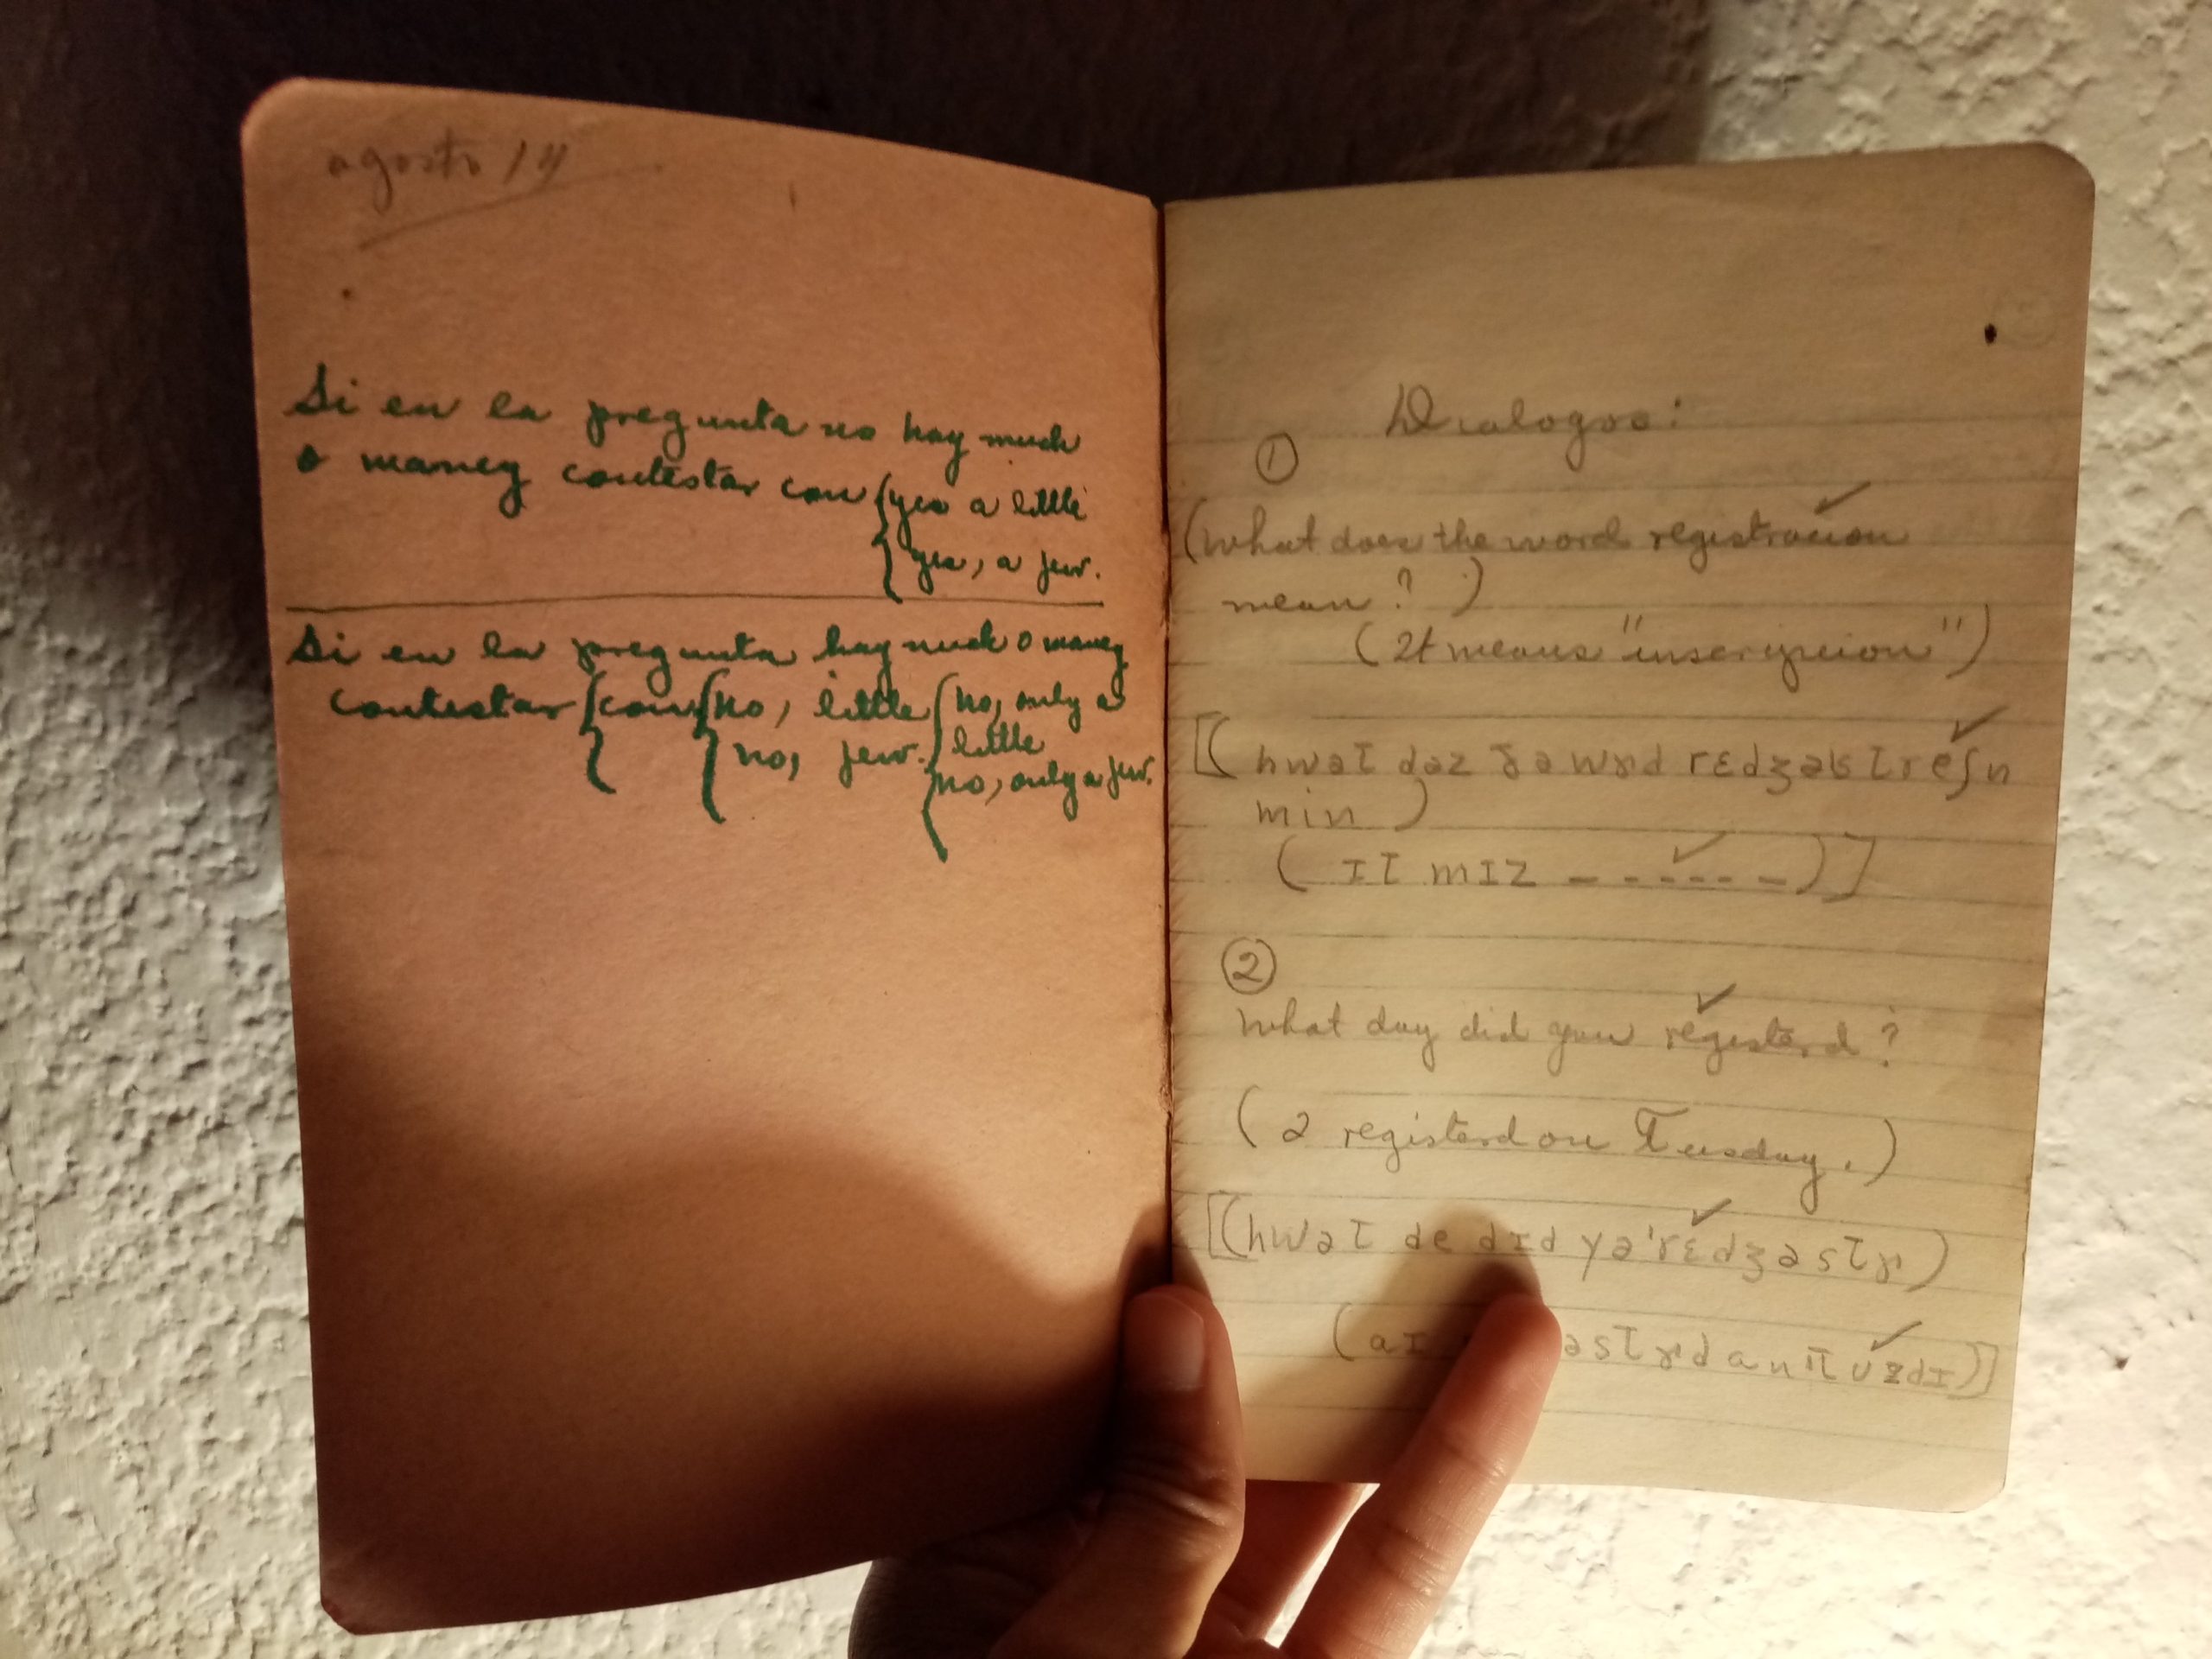 agosto 14
Si en la pregunta no hay much
o maney contestar con { yes a little
{ yes, a few.
Si en la pregunta hay much o maney
contestar { con { no, little { no, only a
no, few. little
no, only a few.
Dialogos:
①
(What does the word registracion
mean? )
(It means "inscripcion")
[( hwət dəz ðə wɝd rɛdʒəstreʃn
min )
( ɪt mɪz ------)]
②
What day did you registerd?
(I registerd on Tuesday.)
[(hwət de dɪd yə'rɛdʒəstɝ)
(aɪ əstɝd an tuzdɪ)]